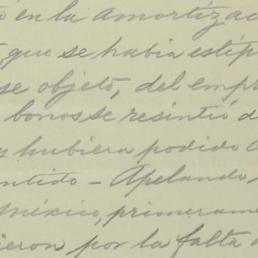 ó en la amortizac
que se habia estip
se objetó, del emp
bonos se resintió d
y hubiera podido
ntido - Apelando,
México, primeram
ieron por la falta d